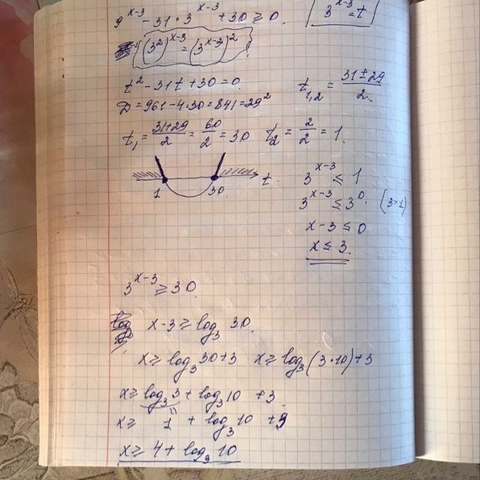 9^{x-3} - 31·3^{x-3} + 30 ≥ 0. 3^{x-3} = t
(3^2)^{x-3} = (3^{x-3})^2
t^2 - 31t + 30 = 0.
D = 961 - 4·30 = 841 = 29^2 t_{1,2} = (31±29)/2
t_1 = (31+29)/2 = 60/2 = 30 t_2 = 2/2 = 1.
1 30 t
3^{x-3} ≤ 1
3^{x-3} ≤ 3^0. (3>1)
x-3 ≤ 0
x ≤ 3.
3^{x-3} ≥ 30.
x-3 ≥ log_3 30.
x ≥ log_3 30 + 3 x ≥ log_3 (3·10) + 3
x ≥ log_3 3 + log_3 10 + 3
x ≥ 1 + log_3 10 + 3
x ≥ 4 + log_3 10